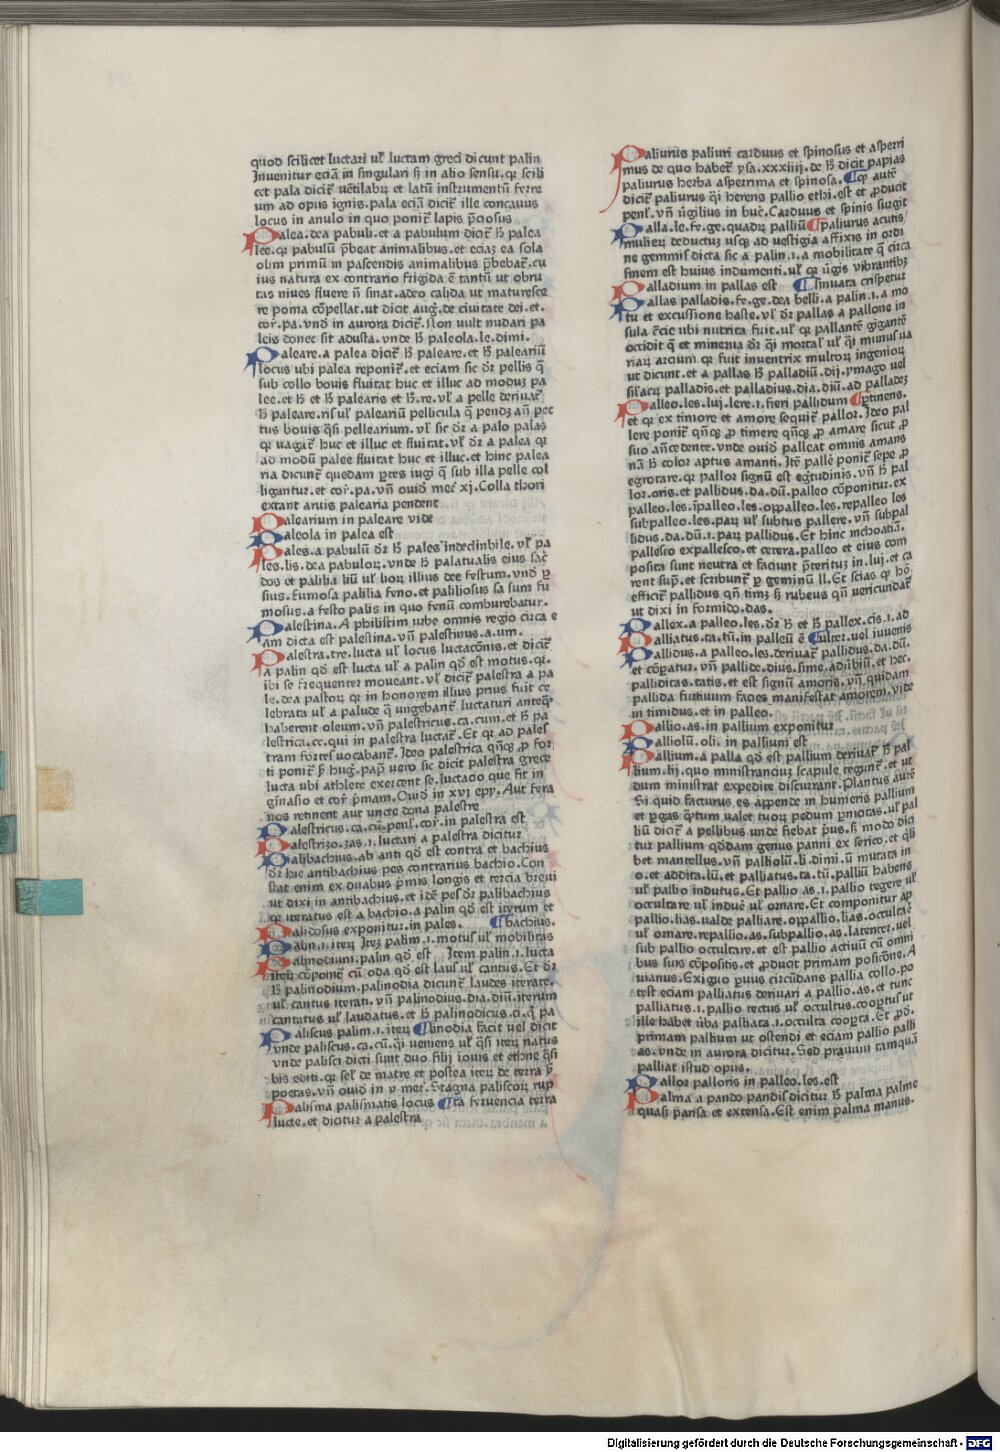 quod scilicet luctari ul̄ luctam greci dicunt palin
Inuenitur eciā in singulari s̄ in alio sensu. qr scili
cet pala dicit̄ uētilabꝝ et latū instrumentū ferre
um ad opus ignis. pala eciā dicit̄ ille concauus
locus in anulo in quo ponit̄ lapis p̄ciosus
Palea. dea pabuli. et a pabulum dicit̄ h̄ palea
lee. qr pabulū p̄beat animalibus. et eciaꝫ ea sola
olim primū in pascendis animalibus p̄bebat̄. cu
ius natura ex contrario frigida ē tantū ut obru
tas niues fluere ñ sinat. adeo calida ut maturesce
re poma cōpellat. ut dicit aug. de ciuitate dei. et.
cor̄. pa. vnd̄ in aurora dicit̄. Non uult nudari pa
leis donec sit adusta. vnde h̄ paleola. le. dimi.
Paleare. a palea dicit̄ h̄ paleare. et h̄ paleariū
locus ubi palea reponit̄. et eciam sic dr̄ pellis q̄
sub collo bouis fluitat huc et illuc ad moduꝫ pa
lee. et h̄ et h̄ palearis et h̄. re. ul̄ a pelle deriuat̄
h̄ paleare. ris ul̄ palearium pellicula q̄ pendꝫ añ pec
tus bouis q̄si pellearium. vl̄ sic dr̄ a palo palas
qr uagat̄ huc et illuc et fluitat. vl̄ dr̄ a palea qr
ad modū palee fluitat huc et illuc. et hinc palea
ria dicunt̄ quedam ꝑtes iugi q̄ sub illa pelle col
ligantur. et cor̄. pa. vñ ouid̄ meṫ xj. Colla thori
extant aruis palearia pendent
Palearium in paleare vide
Paleola in palea est
Pales. a pabulū dr̄ h̄ pales indeclinbile. vl̄ pa
les. lis. dea pabuloꝝ. vnde h̄ palatualis eius sac̄
dos et palilia liū ul̄ lioꝝ illius dee festum. vnd̄ ꝑ
sius. fumosa palilia feno. et paliliosus sa sum fu
mosus. a festo palis in quo fenū comburebatur.
Palestina. A philistim urbe omnis regio circa e
am dicta est palestina. vñ palestinus. a. um.
Palestra. tre. lucta ul̄ locus luctacōnis. et dicit̄
a palin qd̄ est lucta ul̄ a palin qd̄ est motus. qr.
ibi se frequenter moueant. vl̄ dicit̄ palestra a pa
le. dea pastoꝝ qr in honorem illius prius fuit ce
lebrata ul̄ a palude q̄ ungebant̄ luctaturi anteq̄
haberent oleum. vñ palestricus. ca. cum. et h̄ pa
lestrica. ce. qui in palestra luctat̄. Et qr ad pales
tram fortes uocabant̄. Ideo palestrica qn̄qꝫ ꝓ for
ti ponit̄ s̄ hug. pap̄ uero sic dicit palestra grece
lucta ubi athlete exercent se. luctacio que fit in
gīnasio et cor̄ p̄mam. Ouid̄ in xvj epy. Aut fera
nos retinent aut uncte dona palestre
Palestricus. ca. cū. penl̄. cor̄. in palestra est
Palestrizo. zas. i. luctari a palestra dicitur
Palibachius. ab anti qd̄ est contra et bachius
dr̄ hic antibachius pes contrarius bachio. Con
stat enim ex duabus p̄mis longis et tercia breui
ut dixi in antibachius. et idē pes dr̄ palibachius
qr iteratus est a bachio. a palin qd̄ est iterum et
Palidosus exponitur. in pales. ¶bachius.
Palin. i. iteꝝ Iteꝫ palim. i. motus ul̄ mobilitas
Palinodium. palin qd̄ est Item palin. i. lucta
iteꝝ cōponit̄ cū oda qd̄ est laus ul̄ cantus. Et dr̄
h̄ palinodium. palinodia dicunt̄ laudes iterate.
ul̄ cantus iterati. vñ palinodius. dia. diū. iterum
cantatus ul̄ laudatus. et h̄ palinodicus. ci. q̄ pa
Paliscus palim. i. iteꝝ ¶linodia facit uel dicit
vnde paliscus. ca. cū. q̄i ueniens ul̄ q̄si iteꝝ natus
vnde palisci dicti sunt duo filij iouis et ethne q̄si
bis editi. qr sel̄ de matre et postea iteꝝ de terra s̄
poetas. vñ ouid̄ in v meṫ. Stagna paliscoꝝ rup
Palisma palismatis locus ¶ta feruencia terra
lucte. et dicitur a palestra
Paliurus paliuri carduus et spinosus et asperri
mus de quo habet̄ ysa. xxxiiij. de h̄ dicit papias
paliurus herba asperrima et spinosa. ¶Qꝙ autē
dicit̄ paliurus q̄i herens pallio ethi. est et ꝓducit
penl̄. vñ ūgilius in buc̄. Carduus et spinis surgit
Palla. le. fe. ge. quadꝝ palliū ¶paliurus acutis
mulieꝝ deductuꝫ usqꝫ ad uestigia affixis in ordi
ne gemmis dicta sic a palin. i. a mobilitate q̄ circa
finem est huius indumenti. ul̄ qr ūgis vibrantibꝫ
Palladium in pallas est ¶sinuata crispetur
Pallas palladis. fe. ge. dea belli. a palin. i. a mo
tu et excussione haste. vl̄ dr̄ pallas a pallone in
sula t̄cie ubi nutrita fuit. ul̄ qr pallantē gigantē
occidit q̄ et minerua dr̄ q̄i mortal̄ ul̄ q̄i munus ua
riaꝝ arcium qr fuit inuentrix multoꝝ ingenioꝝ
ut dicunt. et a pallas h̄ palladiū. dij. ymago uel
sil̄acꝝ palladis. et palladius. dia. diū. ad palladeꝫ
Palleo. les. lui. lere. i. fieri pallidum ¶ꝑtinens.
et qr ex timore et amore sequit̄ pallor. Ideo pal
lere ponit̄ qn̄qꝫ ꝓ timere qn̄qꝫ ꝓ amare sicut ꝓ
suo añcedente. vnde ouid̄ palleat omnis amans
nā h̄ color aptus amanti. Itē pallē ponit̄ sepe ꝓ
egrotare. qr pallor signū est eg̅tudinis. vñ h̄ pal
lor. oris. et pallidus. da. dū. palleo cōponitur. ex
palleo. les. īpalleo. les. oppalleo. les. repalleo les
subpalleo. les. paꝝ ul̄ subtus pallere. vñ subpal
lidus. da. dū. i. paꝝ pallidus. Et hinc inchoatiā.
pallesco expallesco. et cetera. palleo et eius com
posita sunt neutra et faciunt p̄teritū in. lui. et ca
rent sup̄. et scribunt̄ ꝑ geminū ll. Et scias qr hō
efficit̄ pallidus qñ timꝫ s̄ rubeus qñ uericundat̄
ut dixi in formido. das.
Pallex. a palleo. les. dr̄ h̄ et h̄ pallex. cis. i. ad
Palliatus. ta. tū. in palleū ē ¶ulter. uel iuuenis
Pallidus. a palleo. les. deriuat̄ pallidus. da. dū.
et cōpatur. vñ pallide. dius. sime. adūbiū. et hec.
palliditas. tatis. et est signū amoris. vñ quidam
pallida furtiuum facies manifestat amorem. vide
in timidus. et in palleo.
Pallio. as. in pallium exponitur
Palliolū. oli. in pallium est
Pallium. a palla qd̄ est pallium deriuat̄ h̄ pal
lium. lij. quo ministranciuꝫ scapule tegunt̄. et ut
dum ministrat expedite discurrant. Plantus autē
Si quid facturus es appende in humeris pallium
et ꝑgas q̄tum ualet tuoꝝ pedum ꝑnicitas. ul̄ pal
liū dicit̄ a pellibus unde fiebat p̄us. s̄ modo dici
tur pallium qd̄dam genus panni ex serico. et q̄li
bet mantellus. vñ palliolū. li. dimi. ū mutata in
o. et addita. lū. et palliatus. ta. tū. palliū habens
ul̄ pallio indutus. Et pallio as. i. pallio tegere ul̄
occultare ul̄ indue ul̄ ornare. Et componitur ap
pallio. lias. ualde palliare. oppallio. lias. occultāe
ul̄ ornare. repallio. as. subpallio. as. latenter. uel
sub pallio occultare. et est pallio actiuū cū omni
bus suis cōpositis. et ꝓducit primam posicōne. A
uianus. Exiguo ꝑuus circūdans pallia collo. po
test eciam palliatus deriuari a pallio. as. et tunc
palliatus. i. pallio tectus ul̄ occultus. cooptus ut
ille habet ūba palliata. i. occulta cooꝑta. Et ꝓd̄.
primam pallium ut ostendi et eciam pallio palli
as. vnde in aurora dicitur. Sed prauum tamquā
palliat istud opus.
Pallor palloris in palleo. les. est
Palma a pando pandis dicitur h̄ palma palme
quasi p̄ansa et extensa. Est enim palma manus.
Digitalisierung gefördert durch die Deutsche Forschungsgemeinschaft - DFG